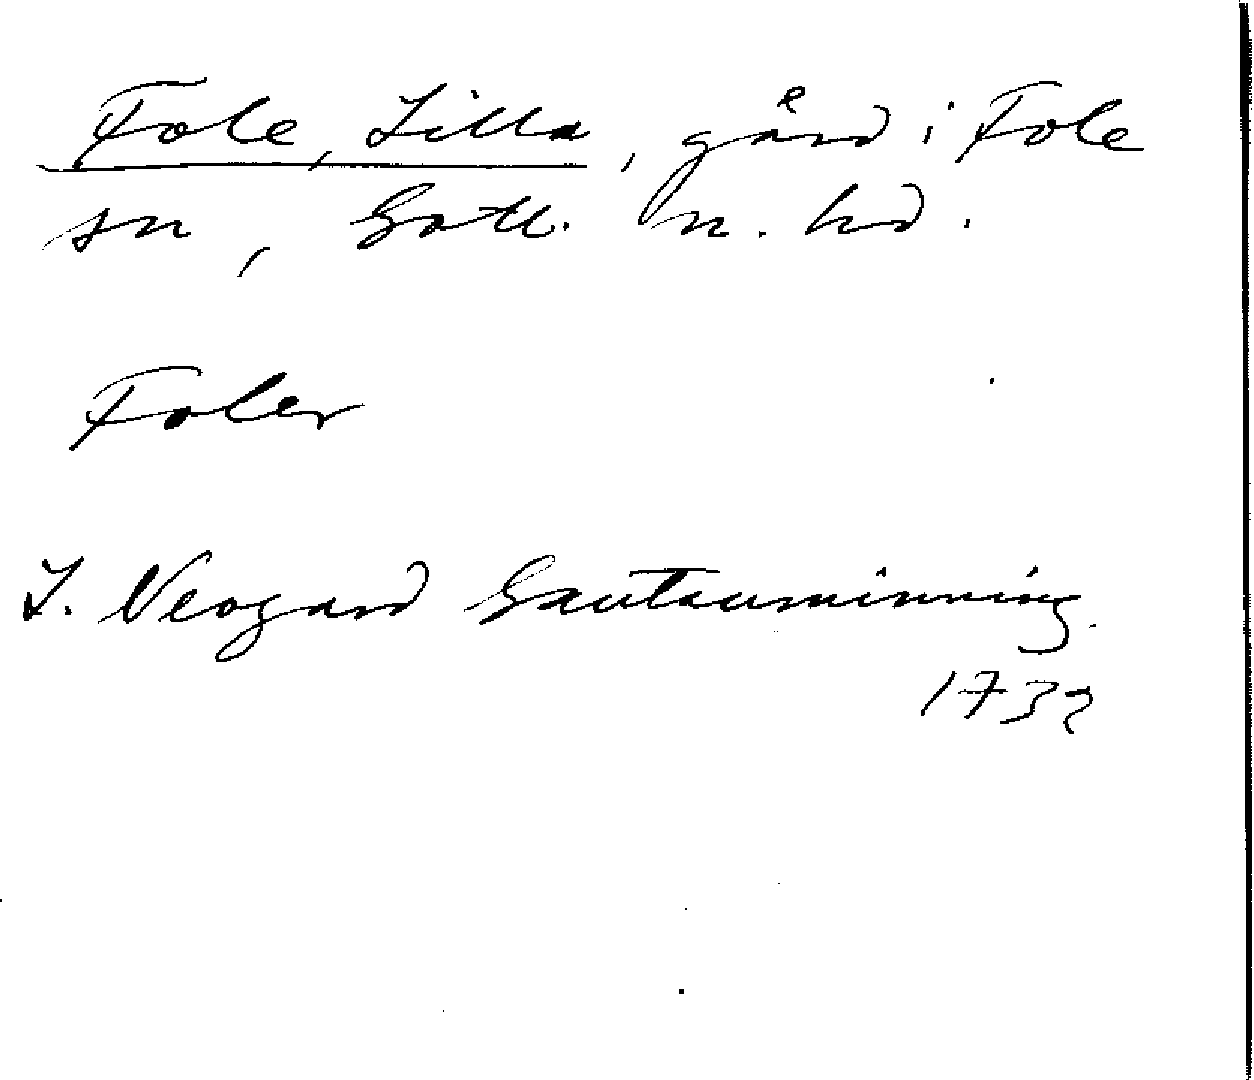 Fole, Lilla, gård i Fole
sn, Gotl. n. hd.
Foler
J. Neogard Gautauminning.
1732